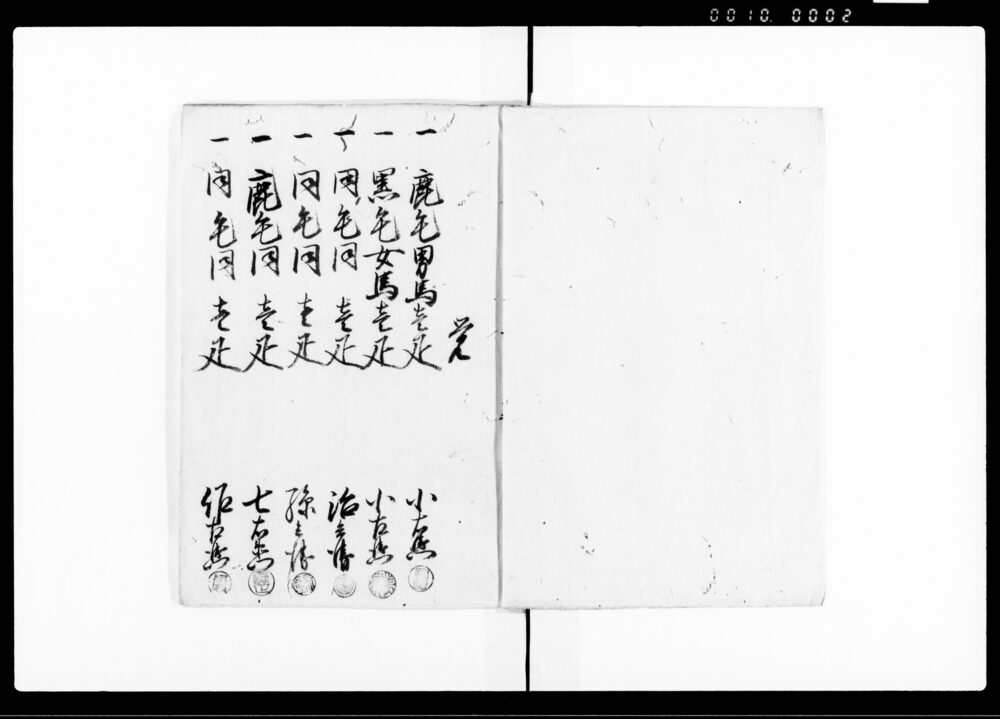 0010. 0002
覚
一 鹿毛男馬壱疋 小右衛門
一 黒毛女馬壱疋 小右衛門
一 同毛同 壱疋 治兵衛
一 同毛同 壱疋 孫兵衛
一 鹿毛同 壱疋 七右衛門
一 同毛同 壱疋 右衛門